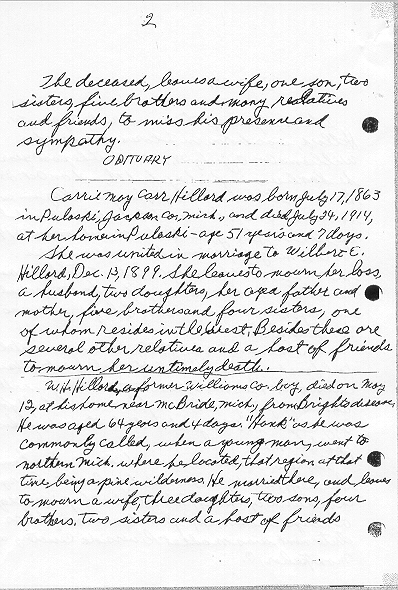 2
The deceased, leaves a wife, one son, two
sisters, five brothers and many realatives
and friends, to miss his presence and
sympathy.
OBITUARY
Carrie May Carr Hillard was born July 17, 1863
in Pulaski, Jackson Co, Mich., and died July 24, 1914,
at her home in Pulaski - age 51 years and 7 days.
She was united in marriage to Wilbert E.
Hillard, Dec. 13, 1899. She leaves to mourn her loss,
a husband, two daughters, her aged father and
mother, five brothers and four sisters, one
of whom resides in the West. Besides these are
several other relatives and a host of friends
to mourn her untimely death.
W.H. Hillard, a former Williams Co. boy, died on May
12, at his home near McBride, Mich, from Brights disease,
He was aged 64 years and 4 days. "Hank" as he was
commonly called, when a young man, went to
northern Mich. where he located, that region at that
time being a pine wilderness. He married there, and leaves
to mourn a wife, three daughters, two sons, four
brothers, two sisters and a host of friends